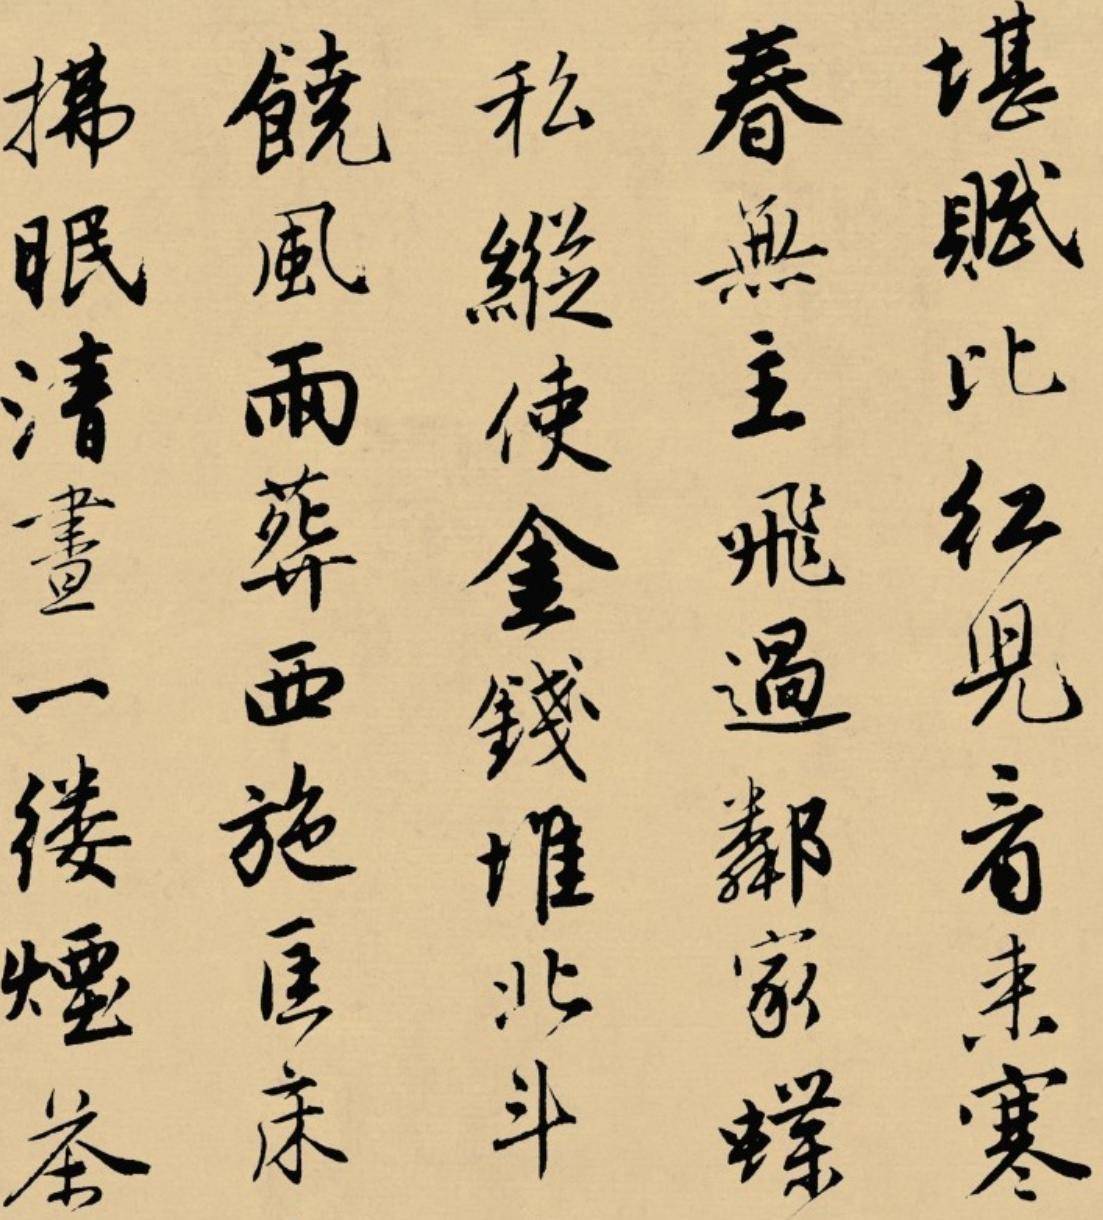 堪賦比紅兒看來寒
春無主飛過鄰家蝶
私縱使金錢堆北斗
饒風雨葬西施匡床
拂眠清晝一縷煙茶